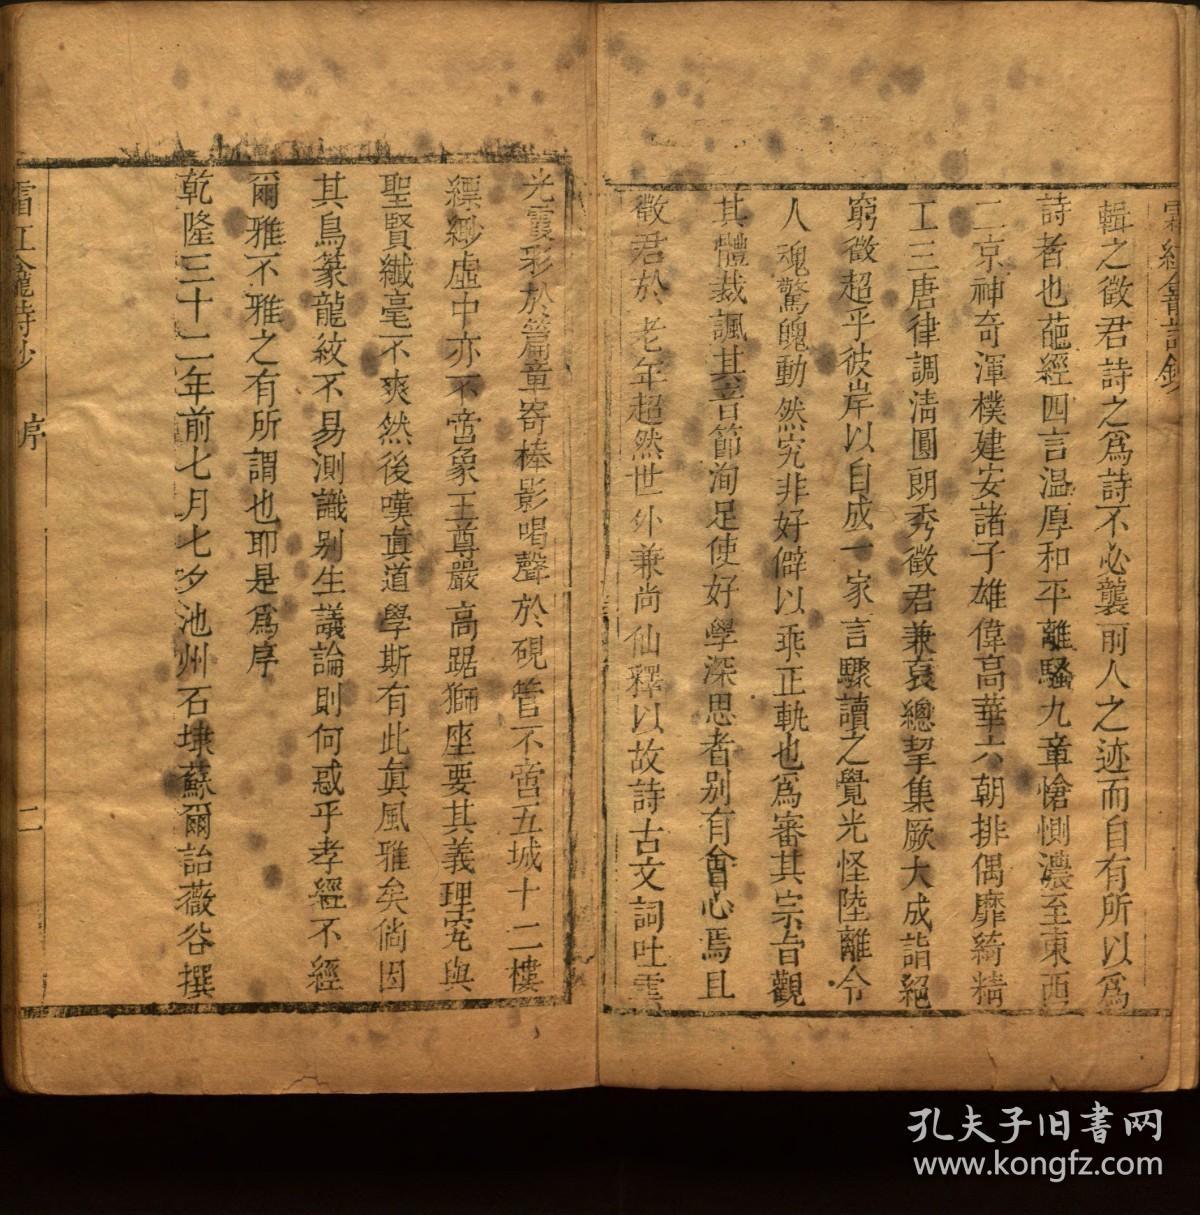 霜紅龕詩鈔
輯之徵君詩之爲詩不必襲前人之迹而自有所以爲
詩者也葩經四言温厚和平離騷九章愴惻濃至東西
二京神奇渾樸建安諸子雄偉高華六朝排偶靡綺精
工三唐律調淸圓朗秀徵君兼裒總挈集厥大成詣絕
窮微超乎彼岸以自成一家言驟讀之覺光怪陸離令
人魂驚魄動然究非好僻以乖正軌也爲審其宗旨觀
其體裁諷其音節洵足使好學深思者别有會心焉且
徵君於老年超然世外兼尚仙釋以故詩古文詞吐雲
光霞彩於篇章寄棒影喝聲於硯管不啻五城十二樓
縹緲虛中亦不啻象王尊嚴高踞獅座要其義理究與
聖賢纖毫不爽然後嘆眞道學斯有此眞風雅矣倘因
其鳥篆龍紋不易測識别生議論則何惑乎孝經不經
爾雅不雅之有所謂也耶是爲序
乾隆三十二年前七月七夕池州石埭蘇爾詒薇谷撰
霜紅龕詩鈔 序 二
孔夫子旧书网
www.kongfz.com